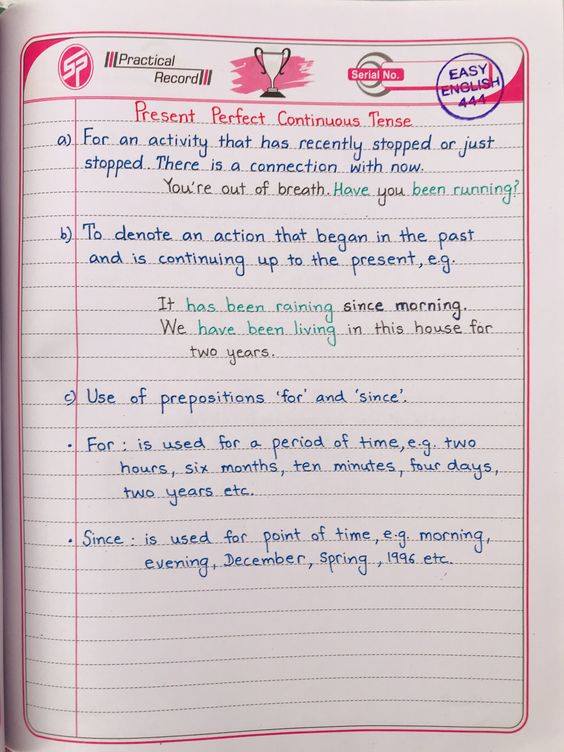 SP
Practical
Record
Serial No.
EASY
ENGLISH
444
Present Perfect Continuous Tense
a) For an activity that has recently stopped or just
stopped. There is a connection with now.
You're out of breath. Have you been running?
b) To denote an action that began in the past
and is continuing up to the present, e.g.
It has been raining since morning.
We have been living in this house for
two years.
c) Use of prepositions 'for' and 'since'.
• For : is used for a period of time, e.g. two
hours, six months, ten minutes, four days,
two years etc.
• Since : is used for point of time, e.g. morning,
evening, December, Spring, 1996 etc.